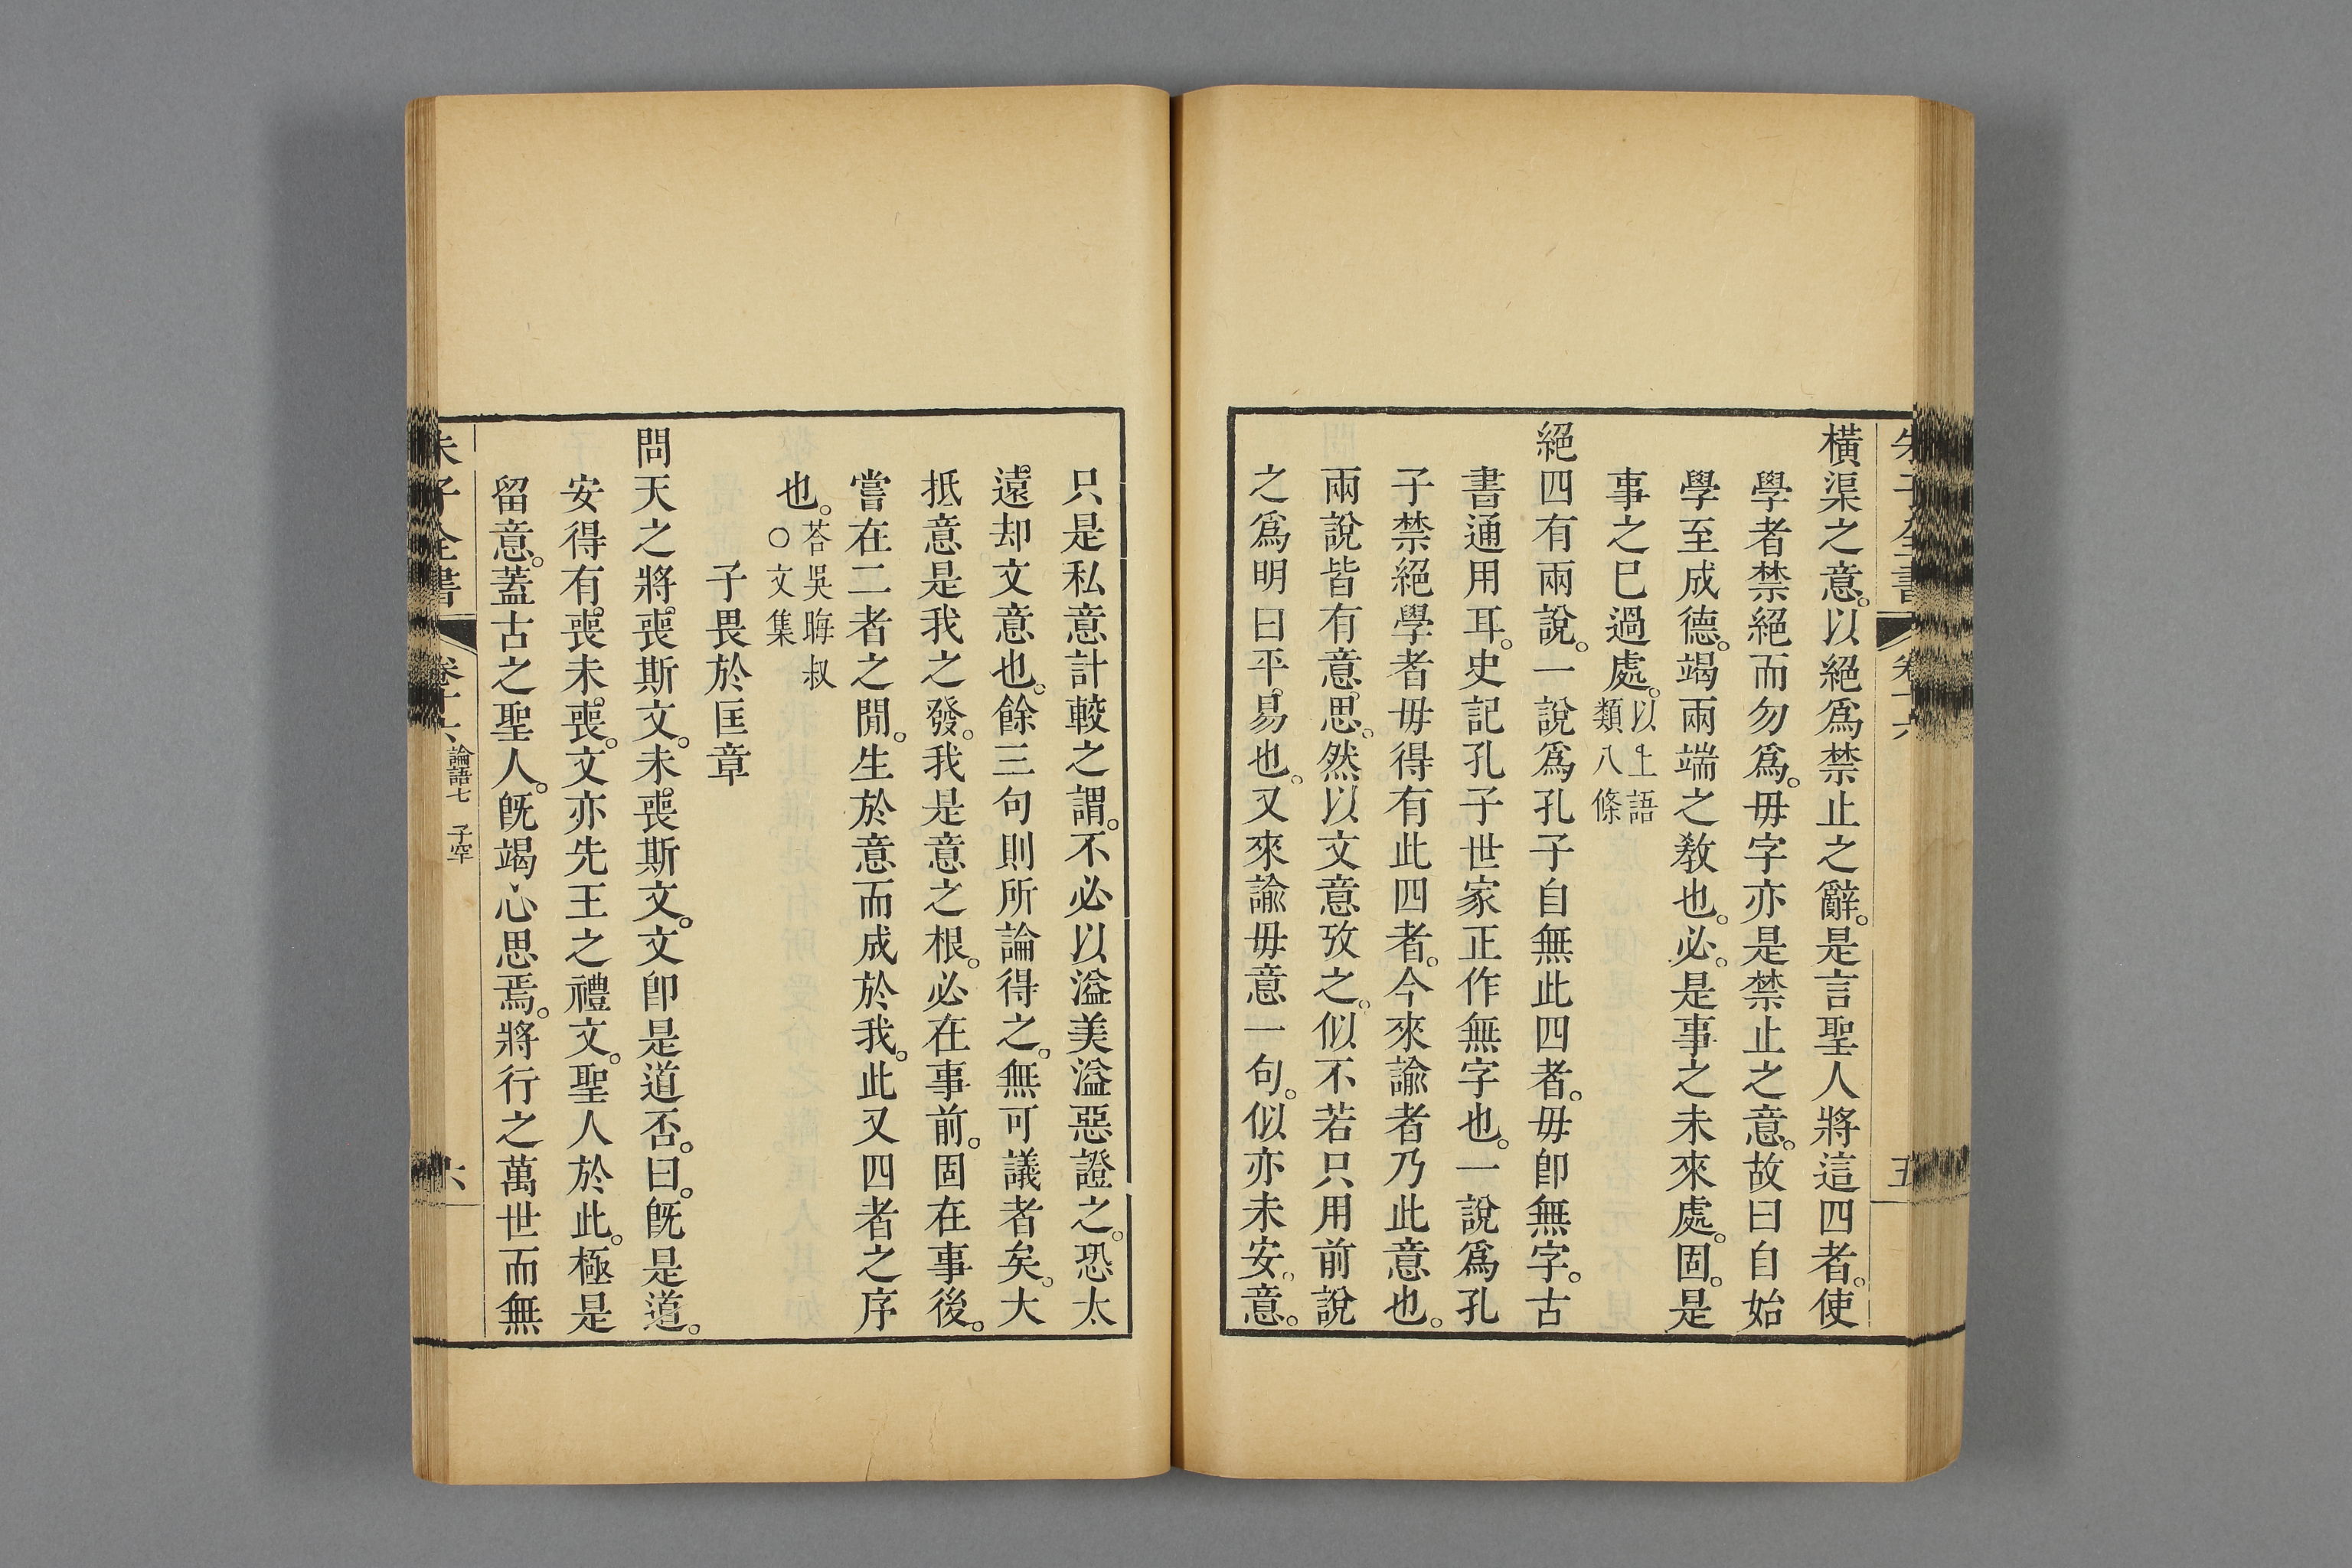 橫渠之意。以絕爲禁止之辭。是言聖人將這四者。使
學者禁絕而勿爲。毋字亦是禁止之意。故曰自始
學至成德。竭兩端之敎也。必。是事之未來處。固。是
事之已過處。以上語類八條
絕四有兩說。一說爲孔子自無此四者。毋卽無字。古
書通用耳。史記孔子世家正作無字也。一說爲孔
子禁絕學者毋得有此四者。今來諭者乃此意也。
兩說皆有意思。然以文意攷之。似不若只用前說
之爲明曰平易也。又來諭毋意一句。似亦未安。意。
卷十六
五
只是私意計較之謂。不必以溢美溢惡證之。恐太
遠却文意也。餘三句則所論得之。無可議者矣。大
抵意是我之發。我是意之根。必在事前。固在事後。
嘗在二者之閒。生於意而成於我。此又四者之序
也。荅吳晦叔○文集
子畏於匡章
問天之將喪斯文。未喪斯文。文卽是道否。曰。旣是道。
安得有喪未喪。文亦先王之禮文。聖人於此。極是
留意。蓋古之聖人。旣竭心思焉。將行之萬世而無
朱子全書
卷十六
論語七 子罕
六